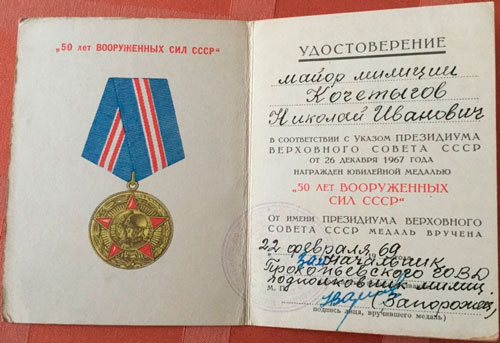 „50 лет ВООРУЖЕННЫХ СИЛ СССР“
УДОСТОВЕРЕНИЕ
майор милиции
Кочетыгов
Николай Иванович
В СООТВЕТСТВИИ С УКАЗОМ ПРЕЗИДИУМА
ВЕРХОВНОГО СОВЕТА СССР
ОТ 26 ДЕКАБРЯ 1967 ГОДА
НАГРАЖДЕН ЮБИЛЕЙНОЙ МЕДАЛЬЮ
„50 ЛЕТ ВООРУЖЕННЫХ
СИЛ СССР“
ОТ ИМЕНИ ПРЕЗИДИУМА ВЕРХОВНОГО
СОВЕТА СССР МЕДАЛЬ ВРУЧЕНА
22 февраля 69
Зам начальник
Прокопьевского ГОВД
подполковник милиц
М. П.
(Запорожец)
подпись лица, вручившего медаль)